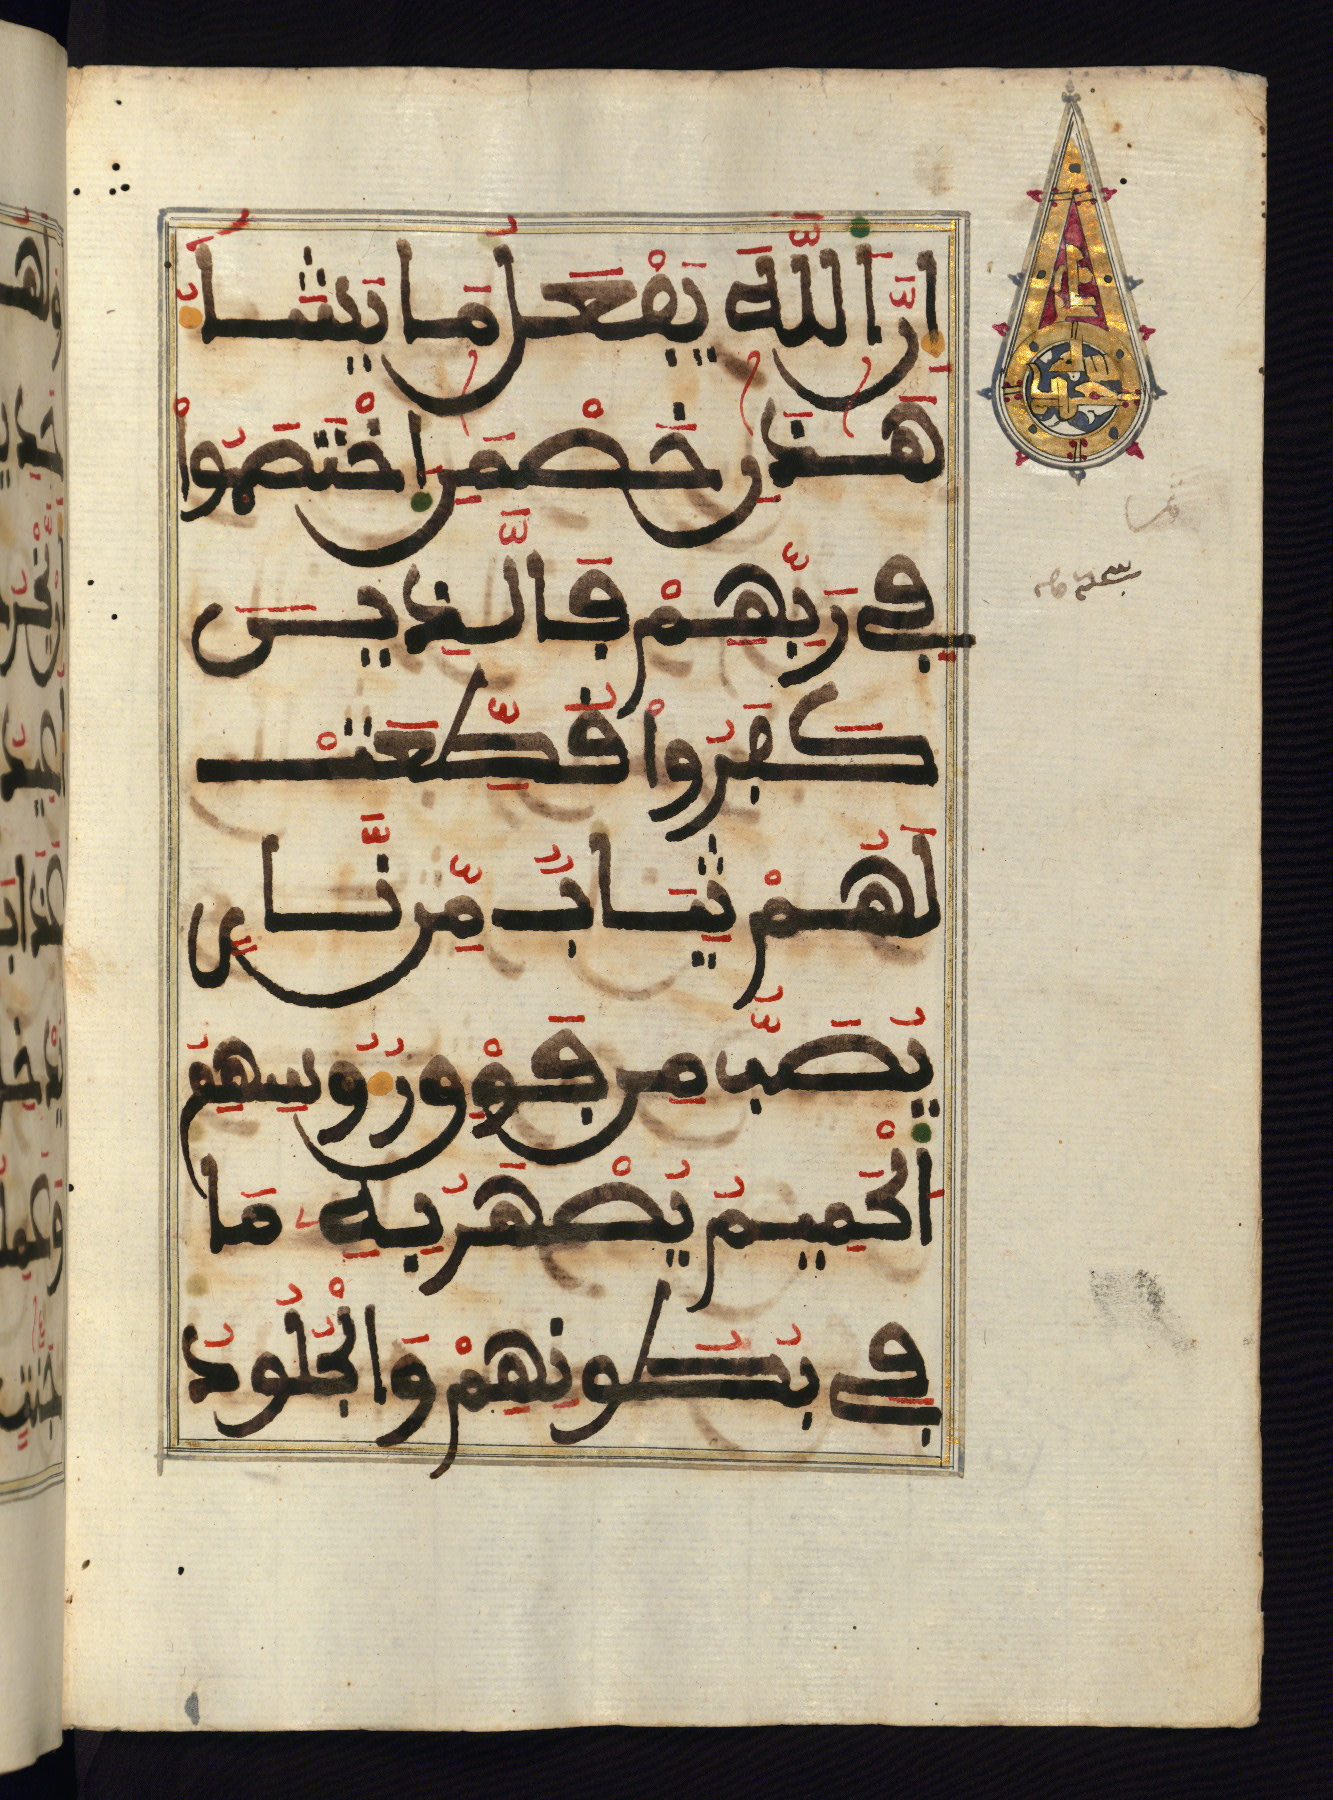 إِنَّ اَللَّهَ يَفْعَلُ مَا يَشَآءُ
هَٰذَٰنِ خَصْمَٰنِ اِخْتَصَمُواْ
فِي رَبِّهِمْ فَالَّذِينَ
كَفَرُواْ قُطِّعَتْ
لَهُمْ ثِيَابٌ مِّن نَّارٍ
يُصَبُّ مِن فَوْقِ رُءُوسِهِمُ
اُلْحَمِيمُ يُصْهَرُ بِهِۦ مَا
فِي بُطُونِهِمْ وَالْجُلُودُ